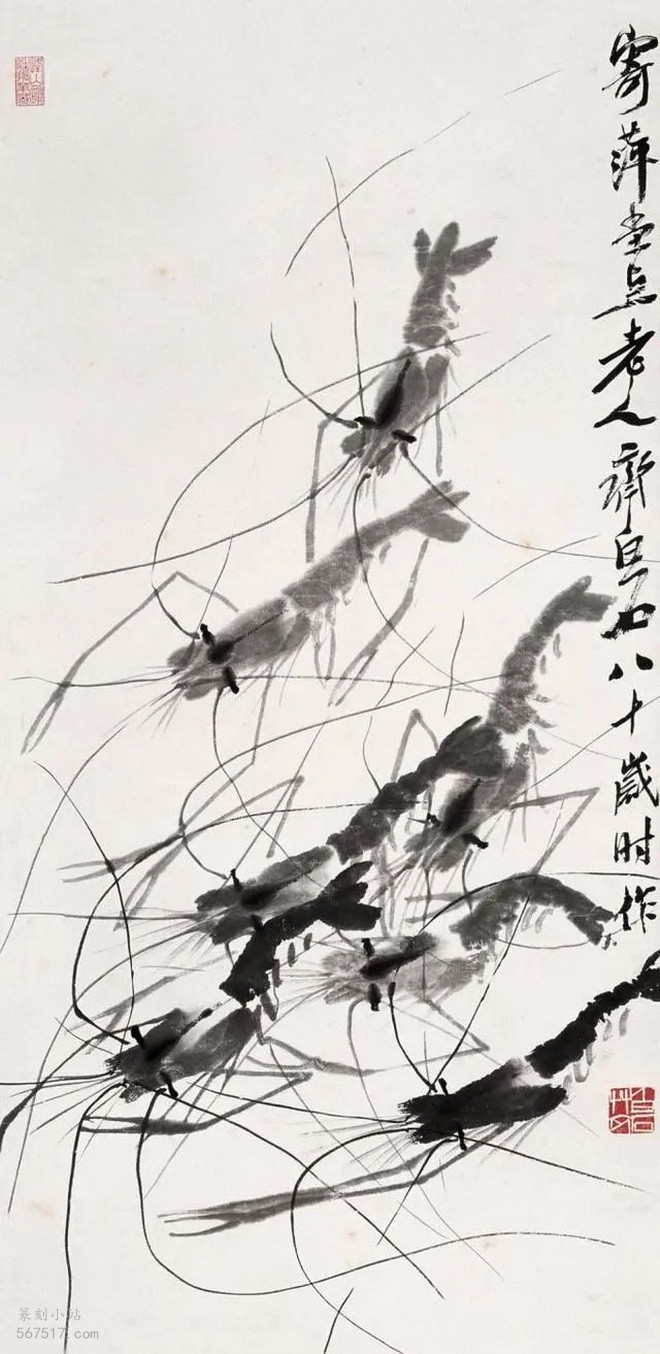 寄萍堂上老人齊白石八十歲时作
白石草衣
篆刻小站
567517.com